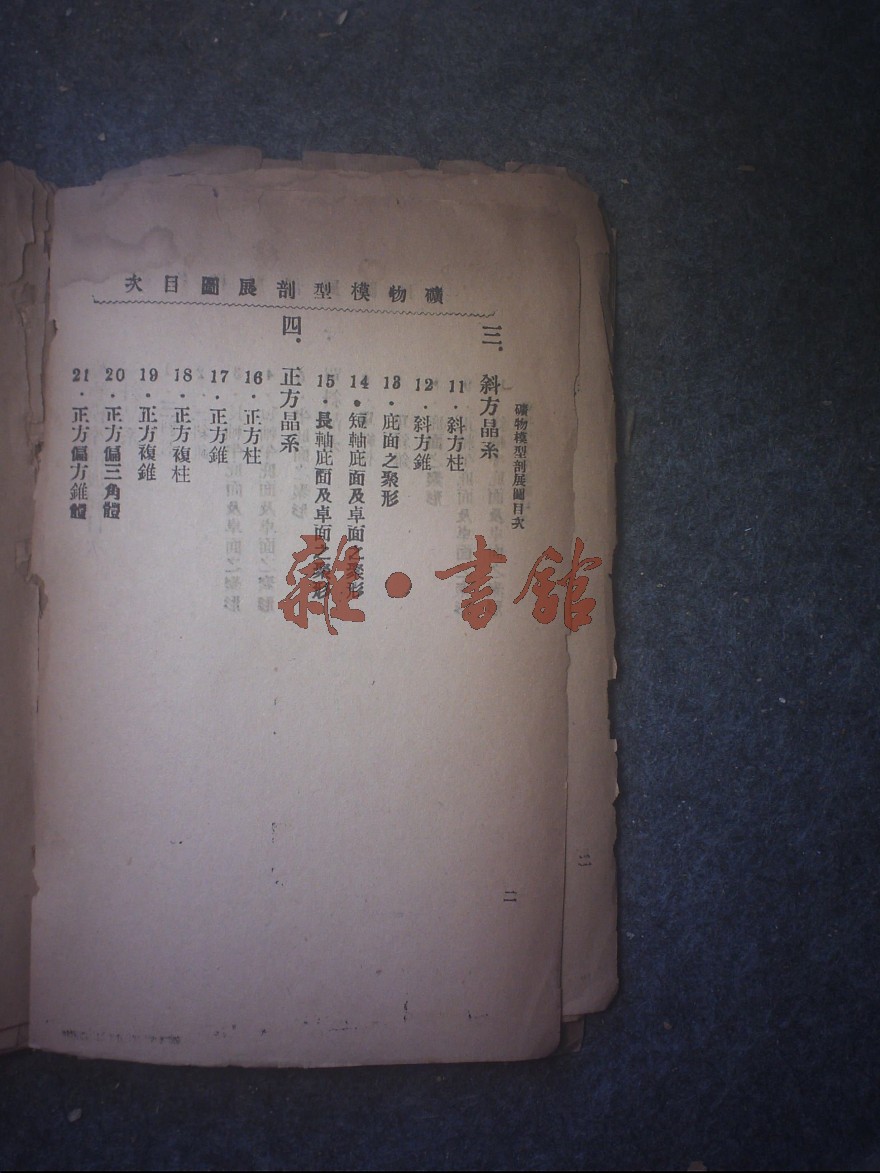 礦物模型剖展圖目次
礦物模型剖展圖目次
三．斜方晶系
11．斜方柱
12．斜方錐
13．庇面之聚形
14．短軸庇面及卓面之聚形
15．長軸庇面及卓面之聚形
四．正方晶系
16．正方柱
17．正方錐
18．正方複柱
19．正方複錐
20．正方偏三角體
21．正方偏方錐體
二
二
雜·書館